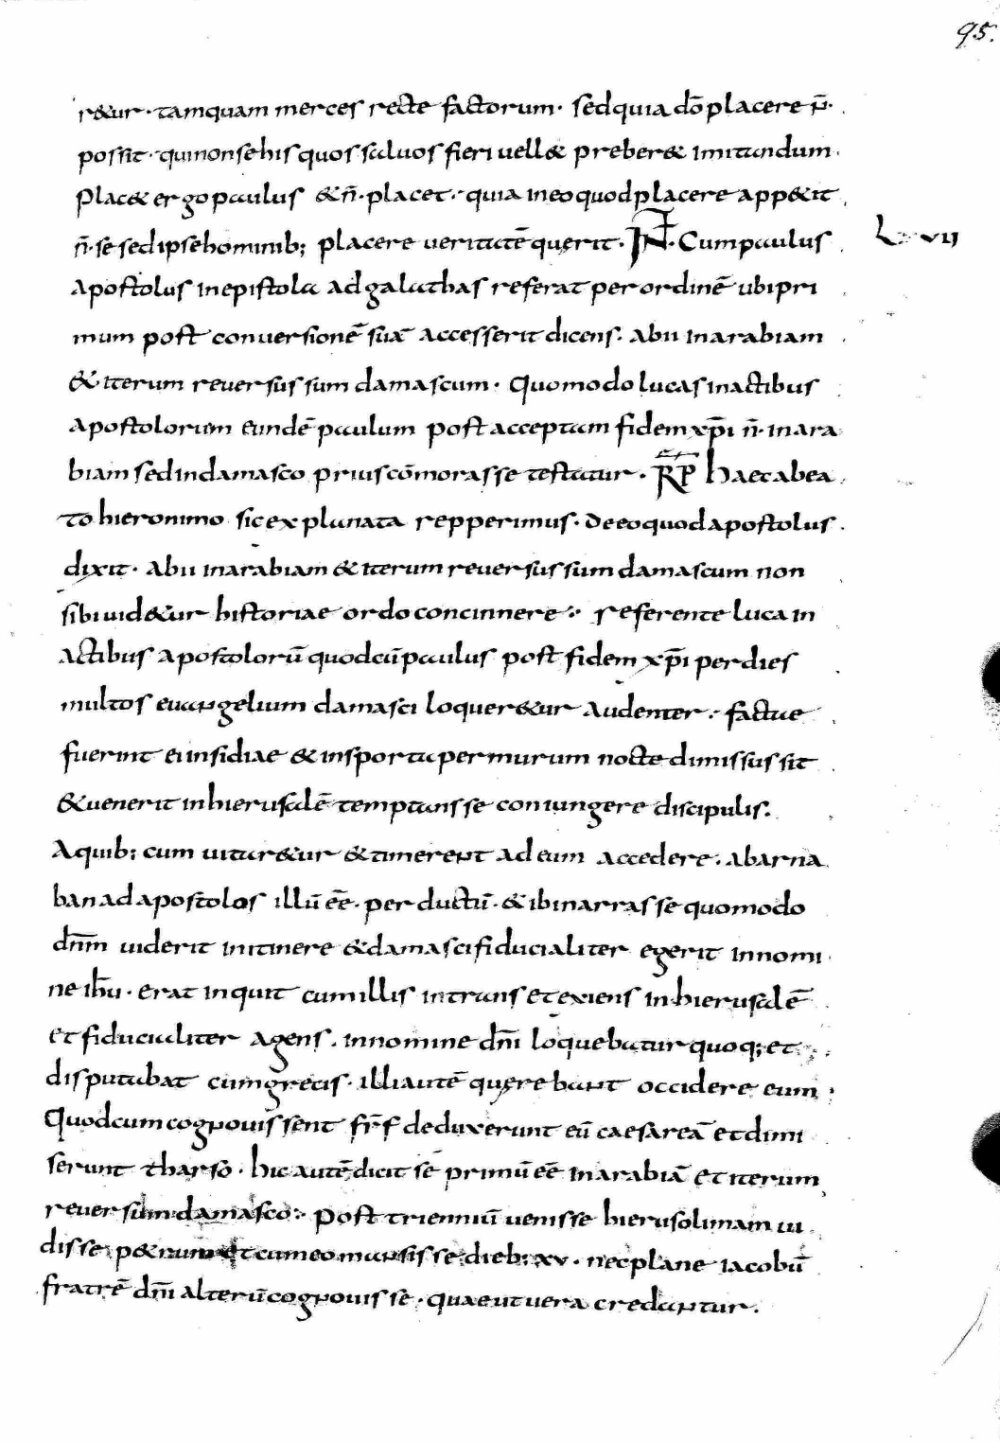 95.
r&ur · tamquam merces recte factorum · sed quia dō placere n̄ ·
possit · qui non se his quos saluos fieri uell& preber& imitandum ·
Plac& ergo paulus & n̄ · placet · quia in eo quod placere app&it
n̄ · se sed ipse hominib; placere ueritatē querit · IN̄T · Cum paulus
LXVII
apostolus in epistola ad galathas referat per ordinē ubi pri
mum post conuersionē suā accesserit dicens · abii in arabiam
& iterum reuersus sum damascum · Quomodo lucas in actibus
apostolorum eundē paulum post acceptam fidem xp̄i n̄ · in ara
biam sed in damasco prius cōmorasse testatur · R̄P̄ haec a bea
to hieronimo sic explanata repperimus · de eo quod apostolus
dixit · abii in arabiam & iterum reuersus sum damascum non
sibi uid&ur historiae ordo concinnere · referente luca in
actibus apostolorū quod cū paulus post fidem xp̄i per dies
multos euangelium damasci loquer&ur audenter · factae
fuerint ei insidiae & in sporta per murum nocte dimissus sit
& uenerit in hierusalē temptans se coniungere discipulis.
A quib; cum uitar&ur & timerent ad eum accedere · a barna
ban ad apostolos illū eē · perductū · & ibi narrasse quomodo
dn̄m uiderit in itinere & damasci fiducialiter egerit in nomi
ne ih̄u · erat inquit cum illis intrans et exiens in hierusalē
et fiducialiter agens · in nomine dn̄i loquebatur quoq; et
disputabat cum grecis · illi autē querebant occidere eum ·
Quod cum cognouissent fr̄s deduxerunt eū caesareā et dimi
serunt tharso · hic autē dicit sē primū eē in arabiā et iterum
reuersum damasco · post trienniū uenisse hierusolimam ui
disse p&rum et cum eo mansisse dieb; xv · nec plane iacobū
fratrē dn̄i alterū cognouisse · quae ut uera credantur ·